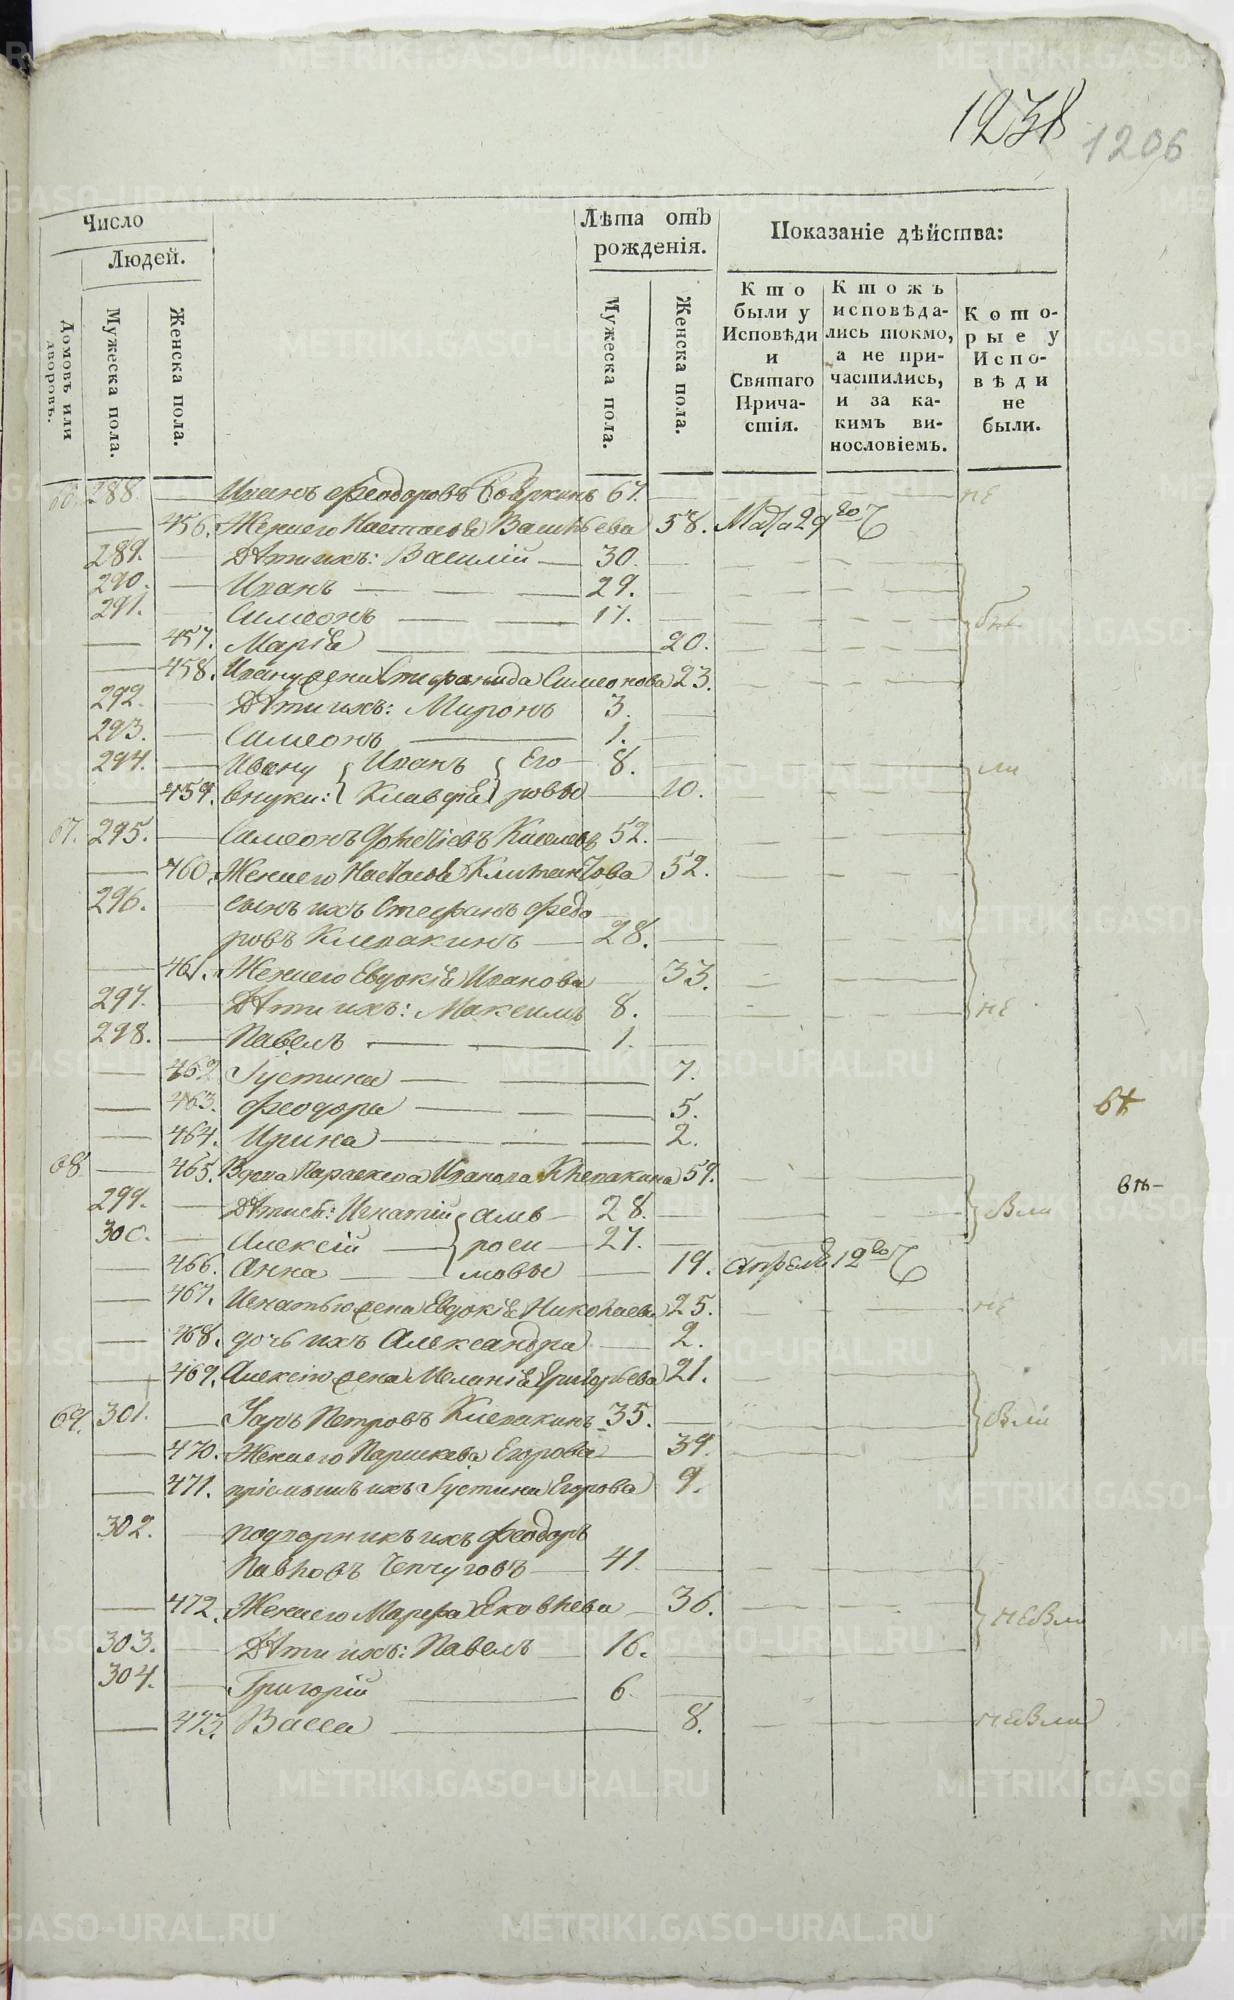 1238
1206
Число
Лѣта отъ рожденія.
Показаніе дѣйства:
Людей.
Домовъ или дворовъ.
Мужеска пола.
Женска пола.
Мужеска пола.
Женска пола.
Кто были у Исповѣди и Святаго Причастія.
Ктожъ исповѣдались токмо, а не причастились, и за какимъ винословіемъ.
Которые у Исповѣди не были.
66. 288. Иванъ Феодоровъ Бояркинъ 67. не
456. Жена его Настасья Васильева 58. Мая 29го Ч
289. Дѣти ихъ: Василій 30.
290. Иванъ 29.
291. Симеонъ 17.
457. Марія 20.
458. Ивану жена Стефанида Симеонова 23.
292. Дѣти ихъ: Миронъ 3.
293. Симеонъ 1.
294. Ивану Иванъ Его 8. ли
459. внуки: Клавдія ровы 10.
67. 295. Симеонъ Киселевъ 52.
460. Жена его Настасья 52.
296. сынъ ихъ Стефанъ Федо
ровъ Клепакинъ 28.
461. Жена его Евдокія Иванова 33.
297. Дѣти ихъ: Максимъ 8. не
298. Павелъ 1.
462. Іустина 7.
463. Феодора 5. бы
464. Ирина 2.
68. 465. Вдова Параскева Иванова Клепакина 59.
299. Дѣти ея: Игнатій амв 28. были
300. Алексій роси 27.
466. Анна мовы 19. Апреля 12го Ч
467. Игнатью жена Евдокія Николаева 25. не
468. дочь ихъ Александра 2.
469. Алексію жена Меланія Григорьева 21.
69. 301. Уаръ Петровъ Клепакинъ 35. были
470. Жена его Парасκева Егорова 39.
471. пріемышъ ихъ Іустина Егорова 9.
302. подворникъ ихъ Феодоръ
Павловъ Чепчуговъ 41.
472. Жена его Марфа Яковлева 36. не были
303. Дѣти ихъ: Павелъ 16.
304. Григорій 6.
473. Васса 8. не были
METRIKI.GASO-URAL.RU